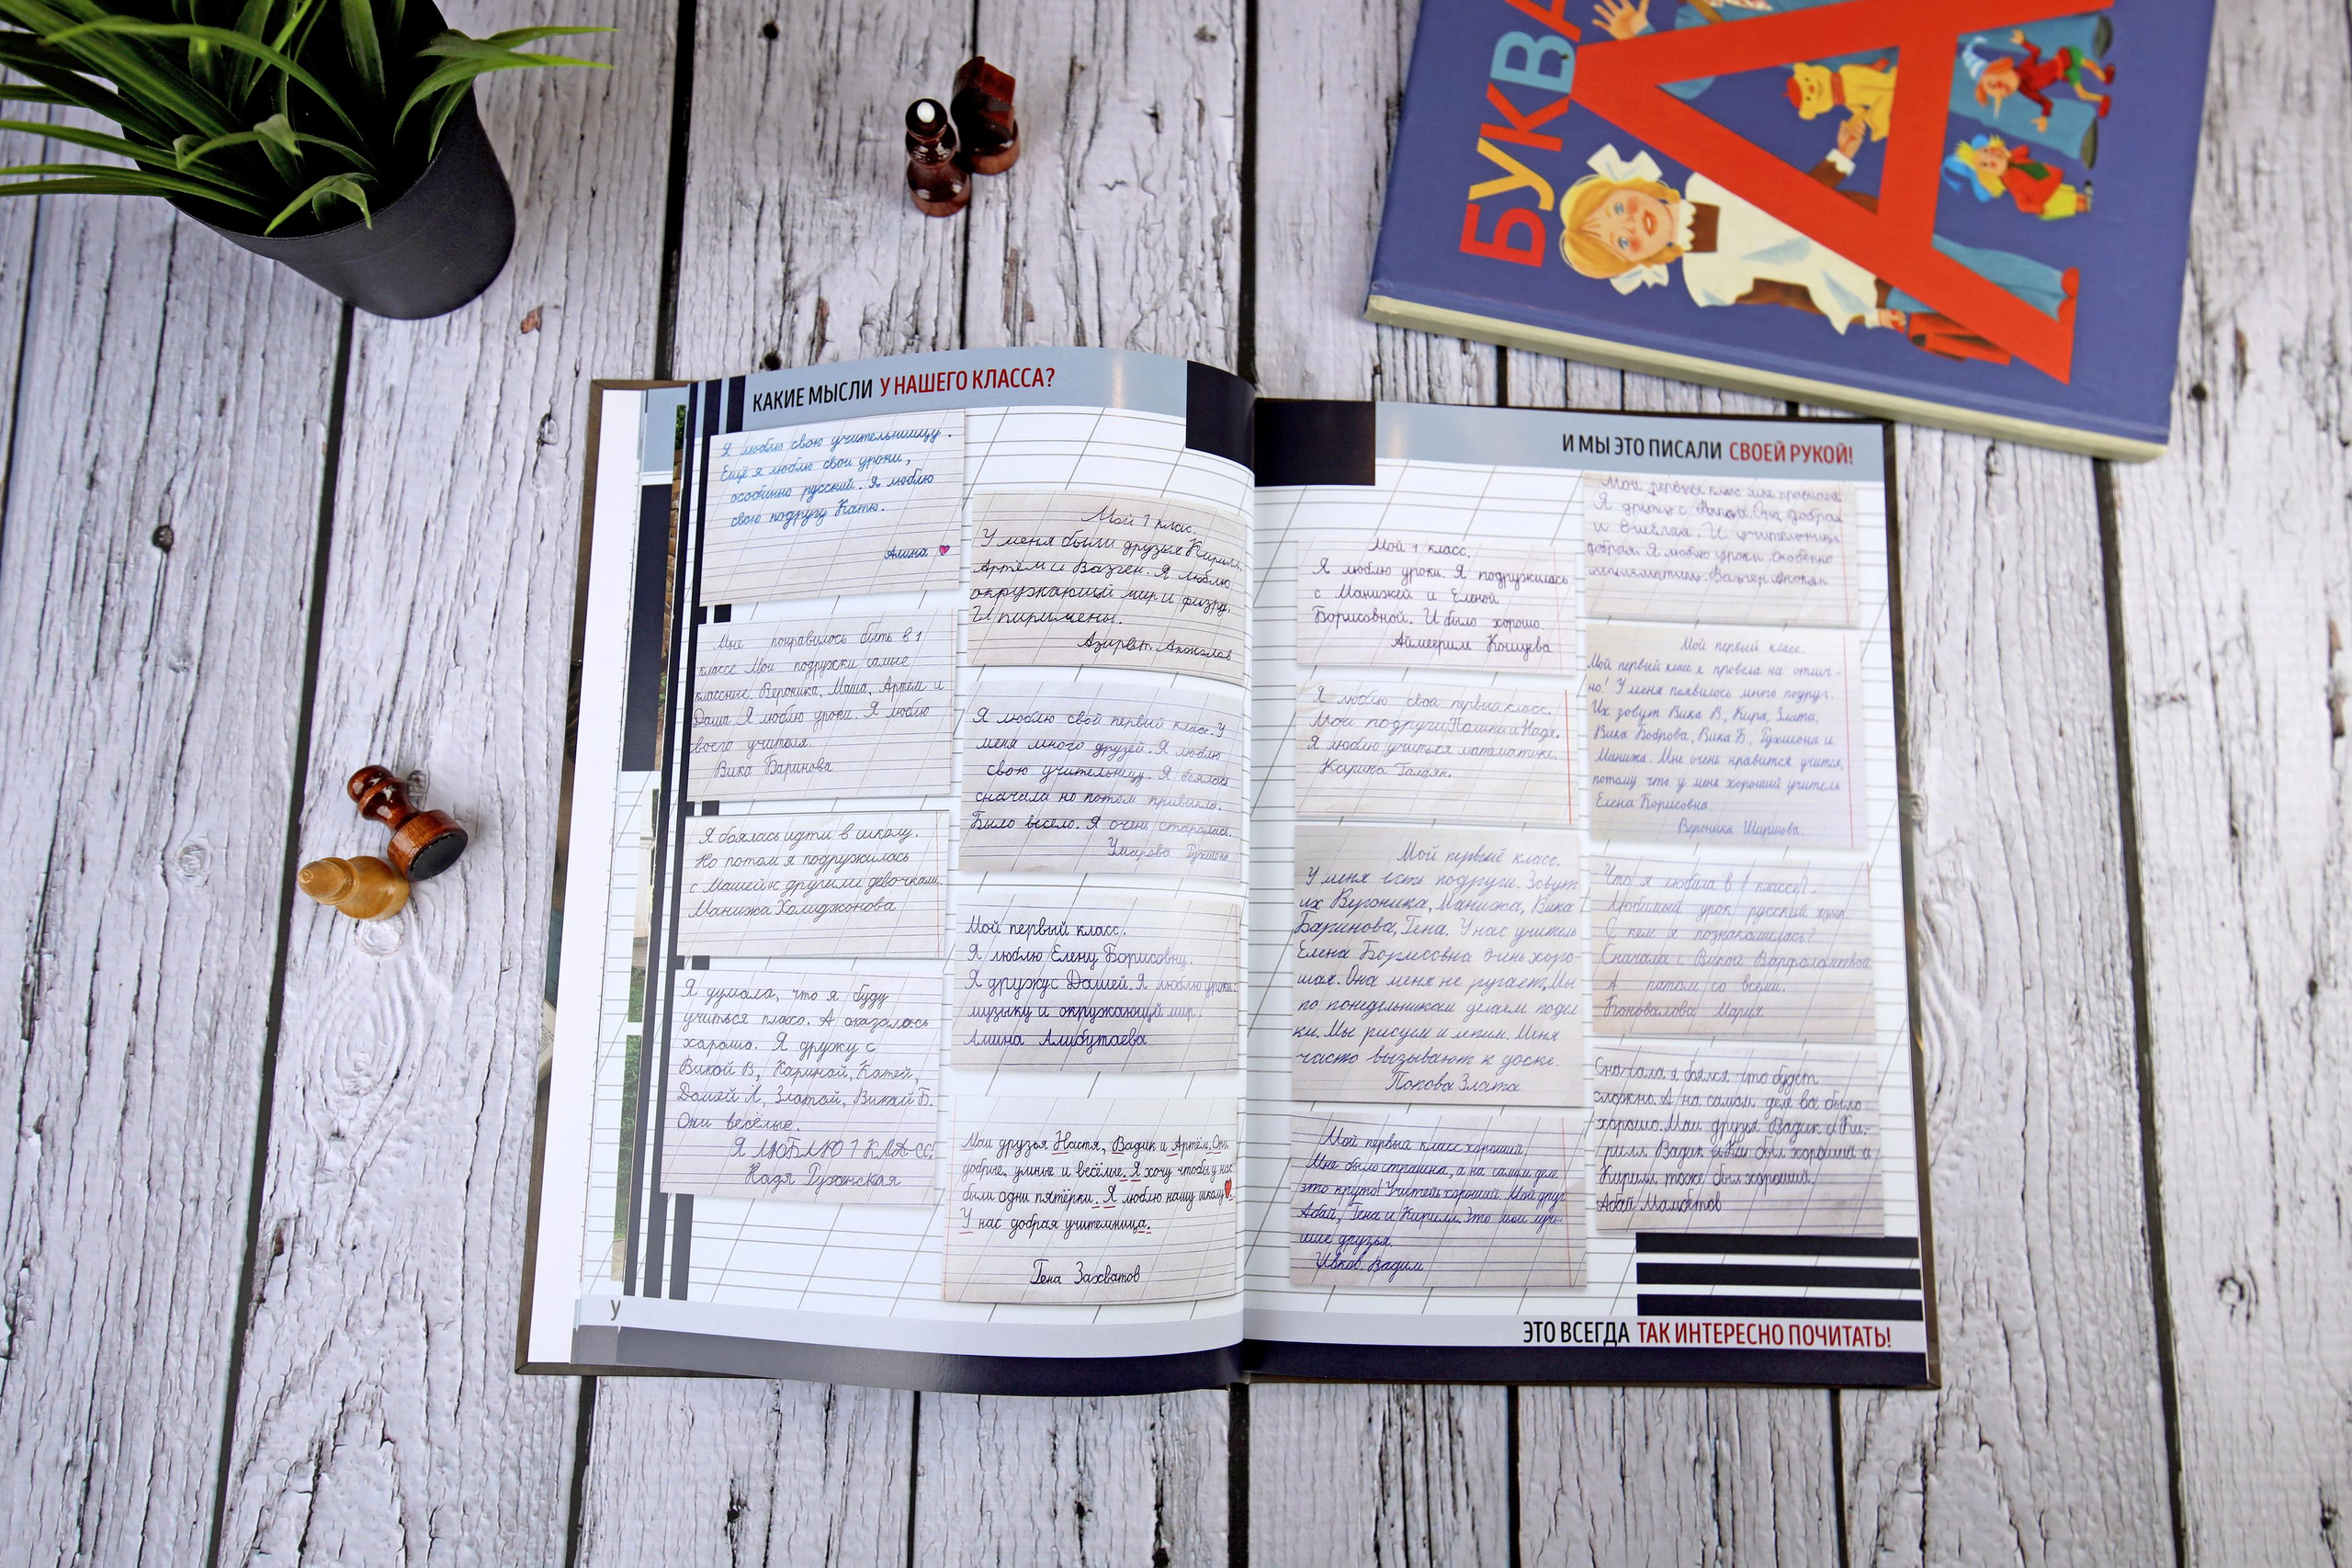 БУКВА
А
КАКИЕ МЫСЛИ У НАШЕГО КЛАССА?
Я люблю свою учительницу.
Ещё я люблю свои уроки,
особенно русский. Я люблю
свою подругу Катю.
Алина
Мне понравилось быть в 1
классе Мои подружки самые
классные. Вероника, Маша, Артём и
Даша. Я люблю уроки. Я люблю
своего учителя.
Вика Баринова
Я боялась идти в школу.
Но потом я подружилась
с Машей и с другими девочками.
Манижа Холиджонова
Я думала, что я буду
учиться плохо. А оказалось
харашо. Я дружу с
Викой В, Кариной, Катей,
Дашей Л, Златой, Викай Б.
Они весёлые.
Я ЛЮБЛЮ 1 КЛАСС.
Надя
Мой 1 клас.
У меня были друзья Кирилл,
Артём и Вазген. Я люблю
окружающий мир и физру.
И пиримены.
Азирет
Я люблю свой первый класс. У
меня много друзей. Я люблю
свою учительницу. Я боялась
сначала но потом привыкла.
Было весело. Я очень старалась.
Умарова
Мой первый класс.
Я люблю Елену Борисовну.
Я дружу с Дашей. Я люблю уроки:
музыку и окружающий мир.
Амина Алибутаева
Маи друзья Настя, Вадик и Артём. Они
добрые, умные и весёлые. Я хочу чтобы у нас
были одни пятёрки. Я люблю нашу школу
У нас добрая учительница.
Гена Захватов
У
И МЫ ЭТО ПИСАЛИ СВОЕЙ РУКОЙ!
Мой 1 класс.
Я люблю уроки. Я подружилась
с Манижей и Еленой
Борисовной. И было хорошо.
Аймеерим
Я люблю свой первый класс.
Мои подруги Полина и Надя.
Я люблю учиться математике.
Карина Галаян.
Мой первый класс.
У меня есть подруги. Зовут
их Вероника, Манижа, Вика
Баринова, Гена. У нас учитель
Елена Борисовна очень хоро-
шая. Она меня не ругает. Мы
по понедельникам делаем подел
ки. Мы рисуем и лепим. Меня
часто вызывают к доске.
Попова Злата
Мой первый класс хороший.
Мне было страшна, а на самом деле
это круто! Учитель хороший. Мой друг
Абай, Гена и Кирилл. Это мои луч-
шие друзья.
Вадим
Мой первый класс мне нравился.
Я дружу с Викой. Она добрая
и И учительница
добрая. Я люблю уроки особенно
математику. Вазген
Мой первый класс.
Мой первый класс я провела на отлич-
но! У меня появилось много подруг.
Их зовут Вика В., Кира, Злата,
Вика Боброва, Вика Б., Тухшона и
Манижа. Мне очень нравится учится,
потому что у меня хороший учитель
Елена Борисовна.
Вероника Ширшова.
Что я любила в 1 классе?
Любимый урок русский язык.
С кем я познакомилась?
Сначала с Викой Варфоламеевой
А патом со всеми.
Коновалова Мария
Сначала я боялся что будет
сложно. А на самам деле всё было
хорошо. Маи друзья Вадик и Ки-
рилл. Вадик был хороший и
Кирилл тоже был хороший.
Абай Мамбетов
ЭТО ВСЕГДА ТАК ИНТЕРЕСНО ПОЧИТАТЬ!